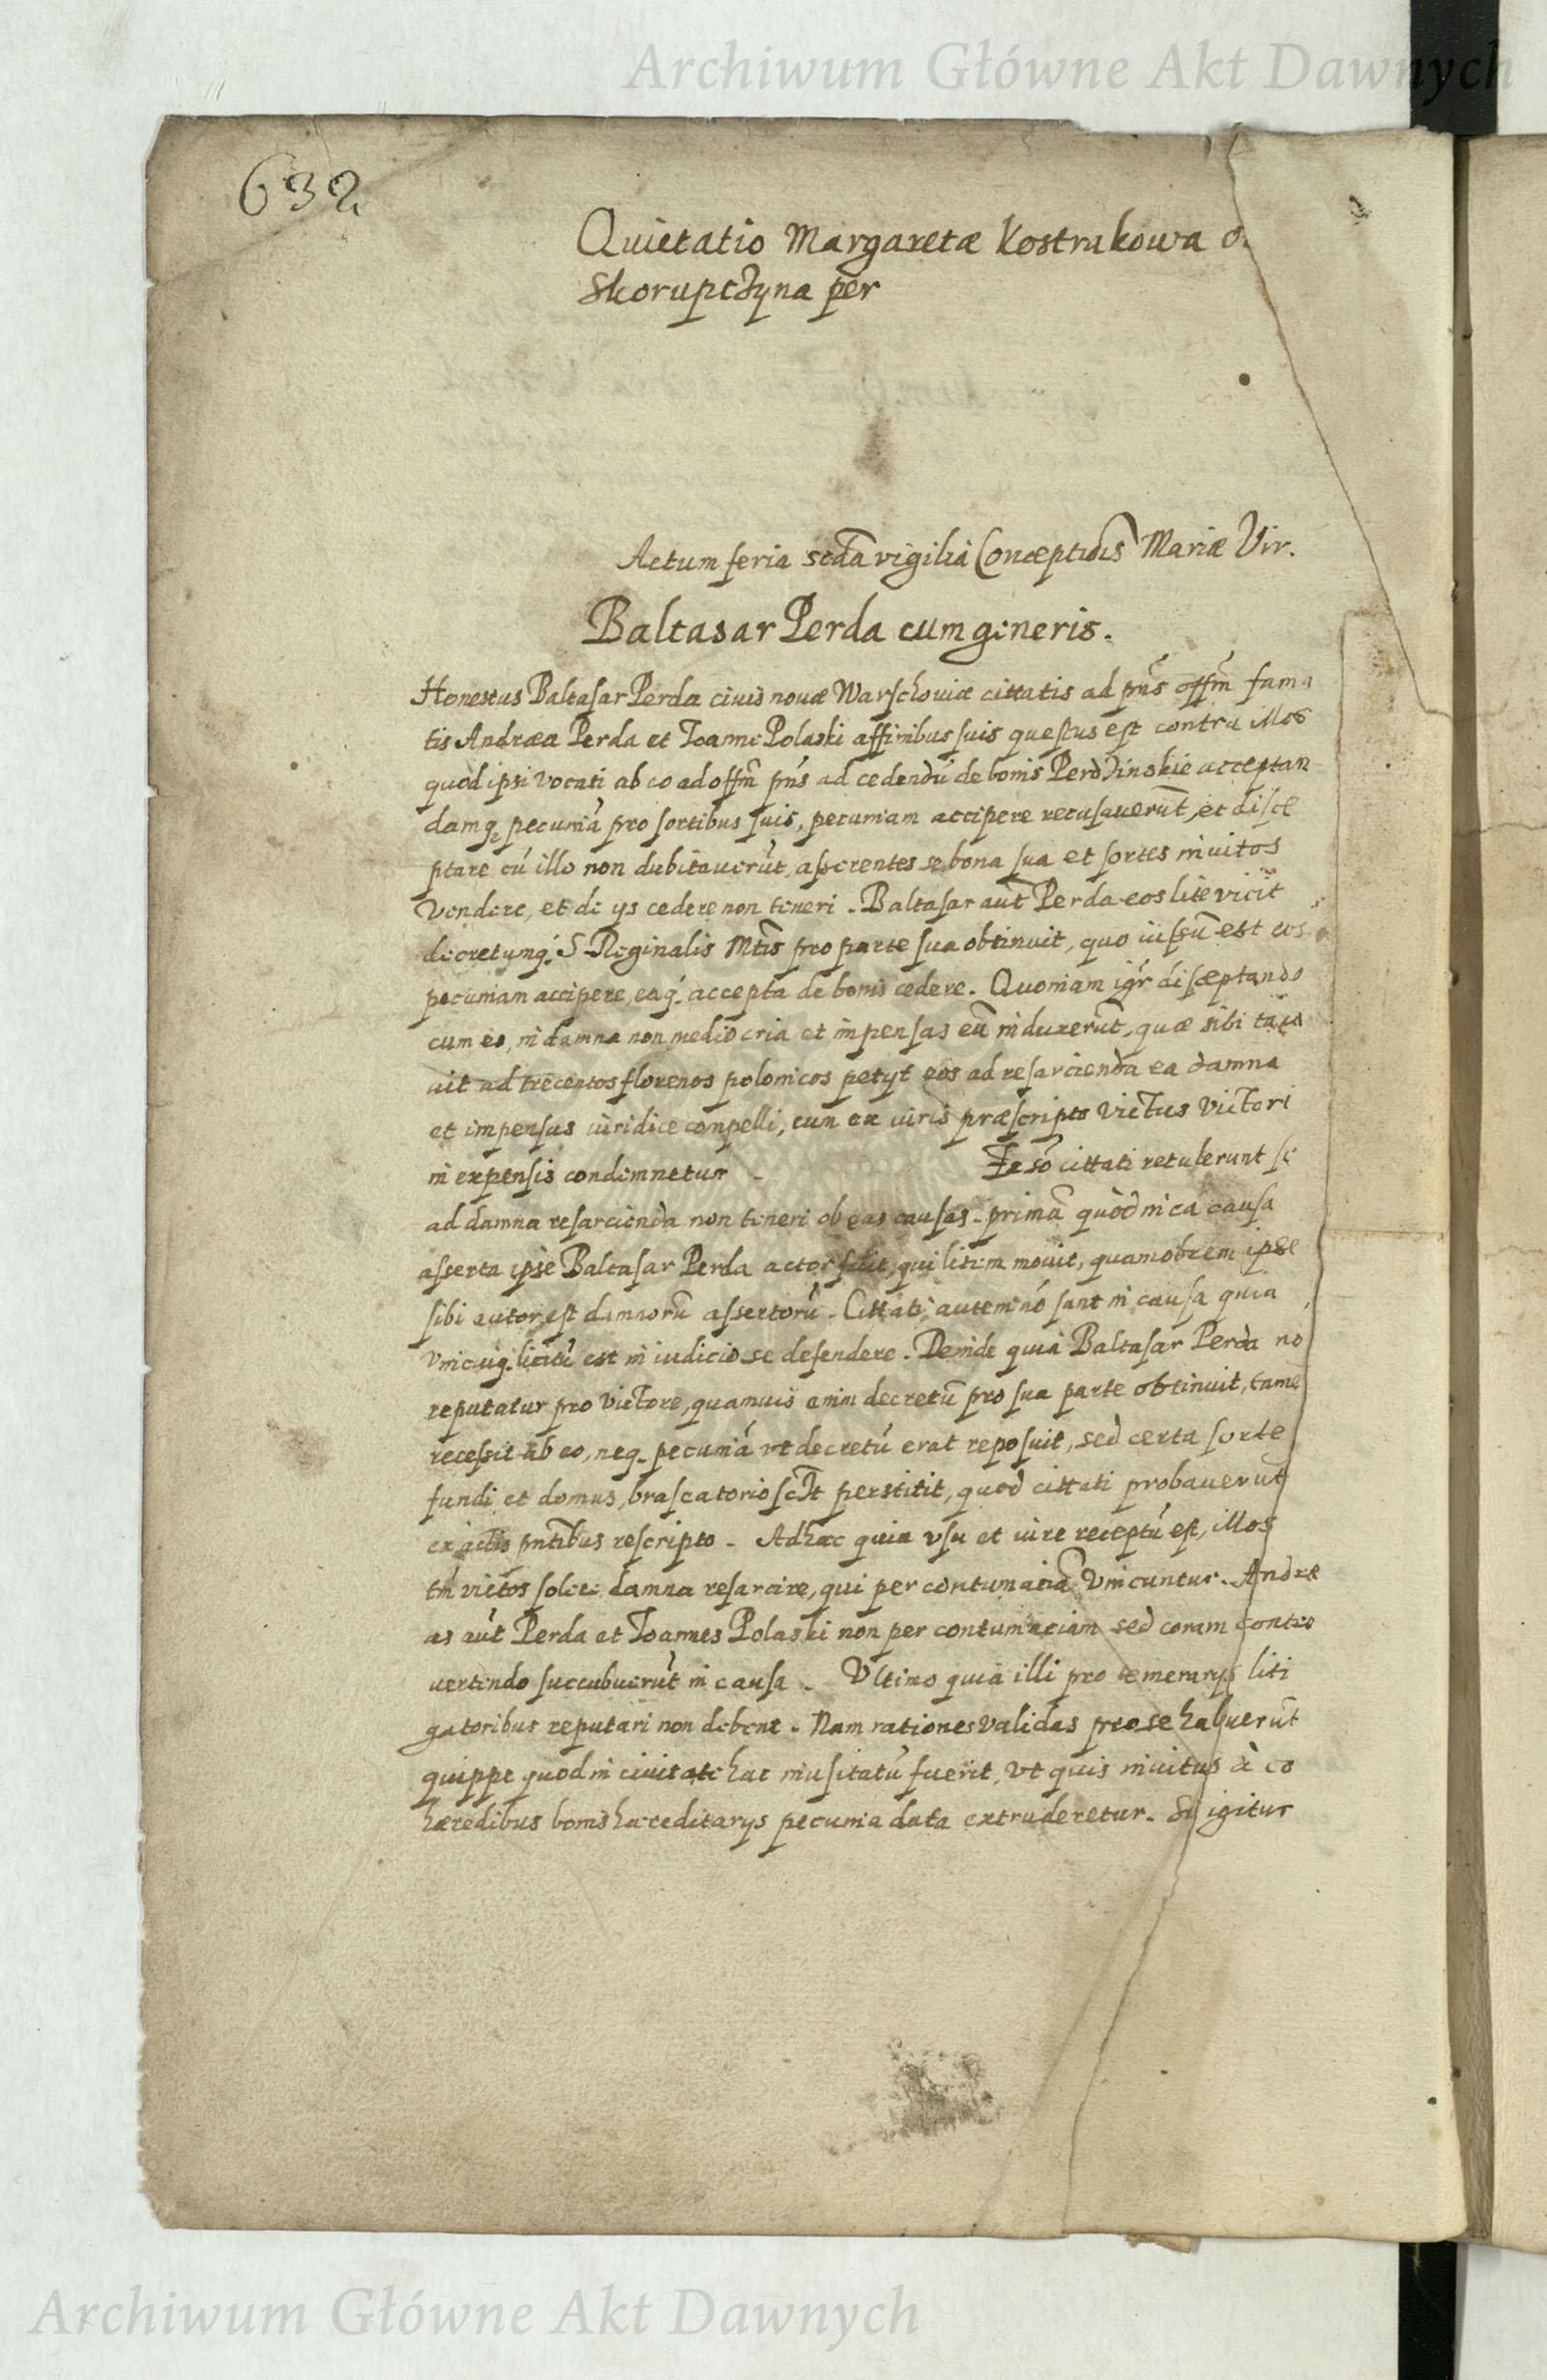 Archiwum Główne Akt Dawnych
632
Quietatio Margaretæ Kostrukowa
Skorupczyna per
Actum feria scďa vigilia Conceptiois Mariæ Vir.
Baltasar Perda cum generis.
Honestus Baltasar Perda civis novæ Warschoviæ cittatis ad pñs offm̃ fama
tis Andræa Perda et Joanne Polaski affinibus suis questus est contra illos
quod ipsi vocati ab eo ad offm̃ pñs ad cedendũ de bonis Perdzinskie acceptan
damq. pecuniã pro sortibus suis, pecuniam accipere recusaverũt, et disce
ptare cũ illo non dubitaverũt, asserentes se bona sua et sortes invitos
Vendere, et de ys cedere non teneri. Baltasar aũt Perda eos lite vicit
decretumq. S. Reginalis Mtis pro parte sua obtinuit, quo iussũ est eos
pecuniam accipere, eaq. accepta de bonis cedere. Quoniam igr̃ disceptando
cum eo, in damna non mediocria et impensas eũ induxerũt, quæ sibi taxa
vit ad trecentos florenos polonicos petyt eos ad resarcienda ea damna
et impensas iuridice compelli, cum ex iuris præscripto Victus Victori
in expensis condemnetur - cittati retulerunt se
ad damna resarcienda non teneri ob eas causas. primã quòd in ea causa
asserta ipse Baltasar Perda actor fuit, qui litem movit, quamobrem ipse
sibi autor est damnorũ assertorũ. Cittati autem nõ sunt in causa quia
Unicuiq. licitũ est in iudicio se defendere. Deinde quia Baltasar Perda no
reputatur pro Victore, quamvis enim decretũ pro sua parte obtinuit, tame
recessit ab eo, neq. pecuniã ut decretũ erat reposuit, sed certa sorte
fundi et domus, brascatorio sclt perstitit, quod cittati probaverũt
ex actis pñtibus rescripto. Adhæc quia usu et iure receptũ est, illos
tm̃ victos solere damna resarcire, qui per contumaciã Vincuntur. Andre
as aũt Perda et Joannes Polaski non per contumaciam sed coram contro
vertendo succubuerũt in causa. Ultimo quia illi pro temerarys liti
gatoribus reputari non debent. Nam rationes validas pro se habuerũt
quippe quod in civitate hac inusitatũ fuerit, ut quis invitus à co
hæredibus bonis hæreditarys pecunia data extruderetur. Si igitur
Archiwum Główne Akt Dawnych